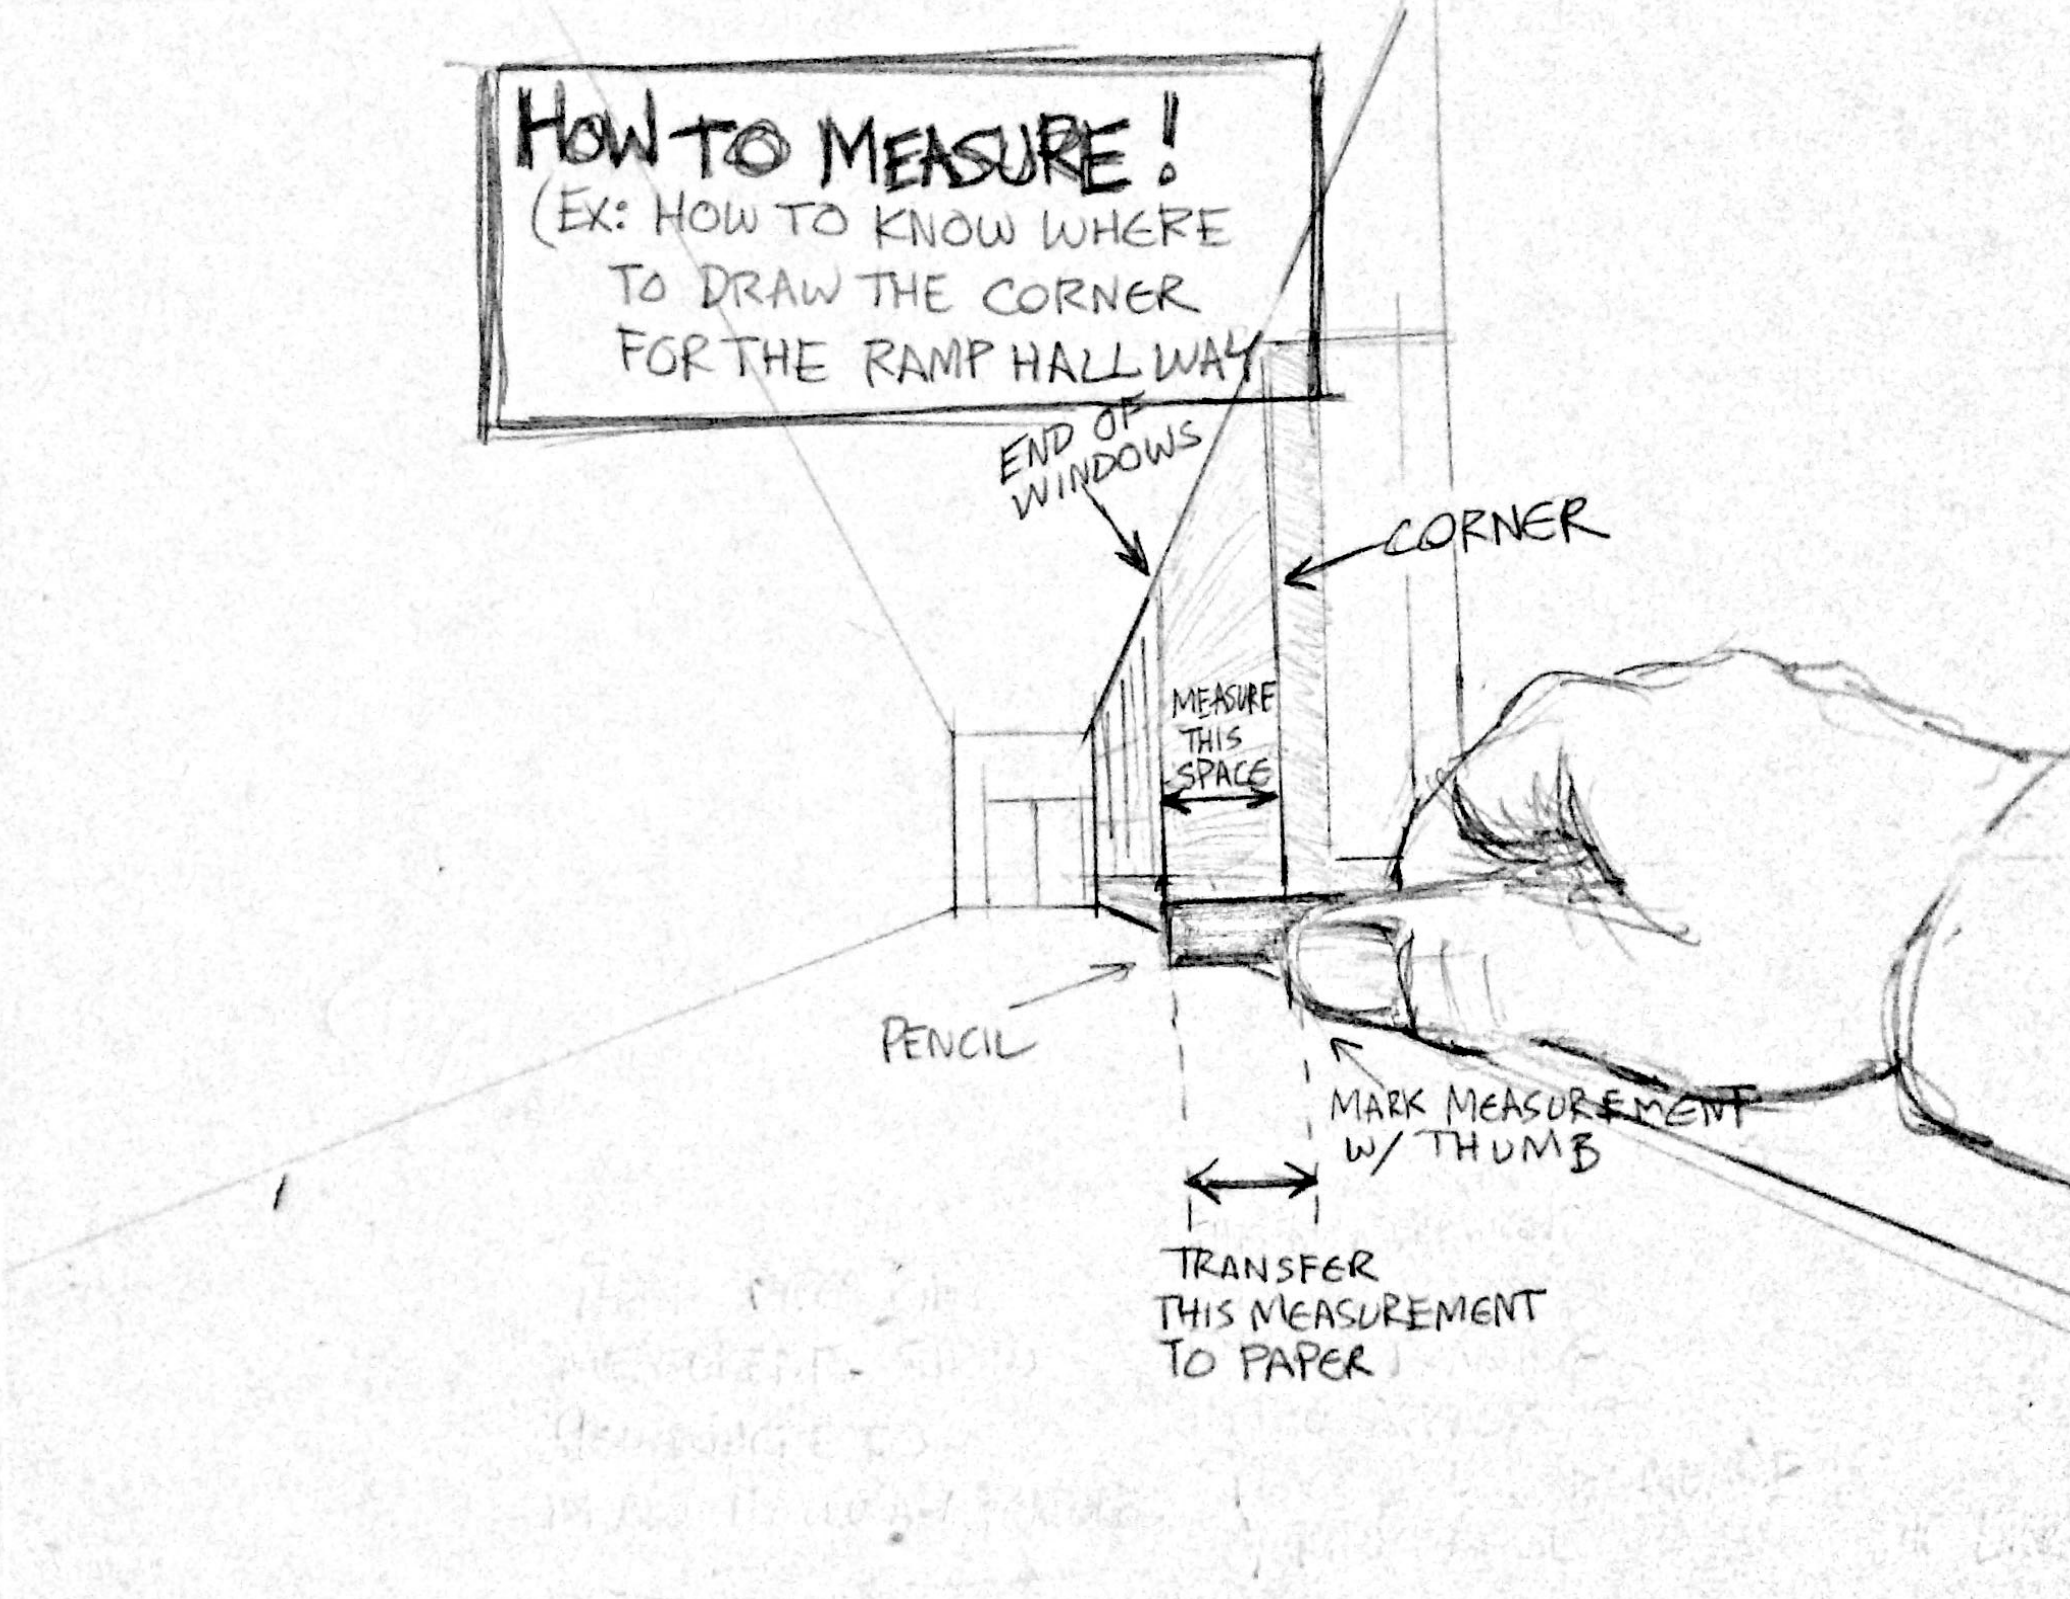 HOW TO MEASURE!
(EX: HOW TO KNOW WHERE
TO DRAW THE CORNER
FOR THE RAMP HALLWAY
END OF
WINDOWS
CORNER
MEASURE
THIS
SPACE
PENCIL
MARK MEASUREMENT
W/ THUMB
TRANSFER
THIS MEASUREMENT
TO PAPER